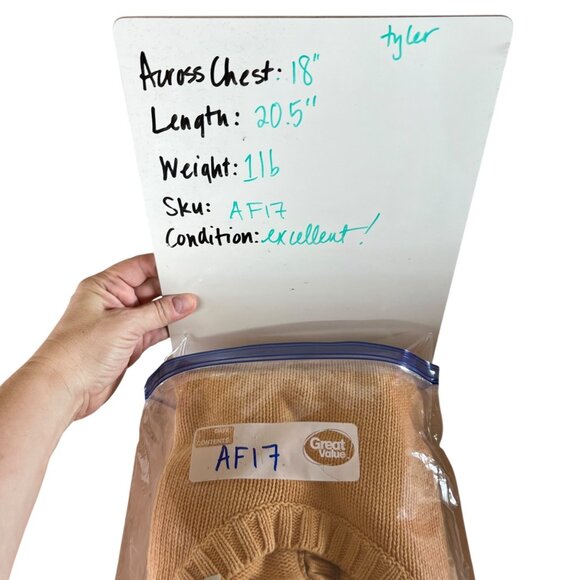 tyler
Across Chest: 18"
Length: 20.5"
Weight: 1lb
Sku: AF17
Condition: excellent!
CONTENTS
Great Value
AF17